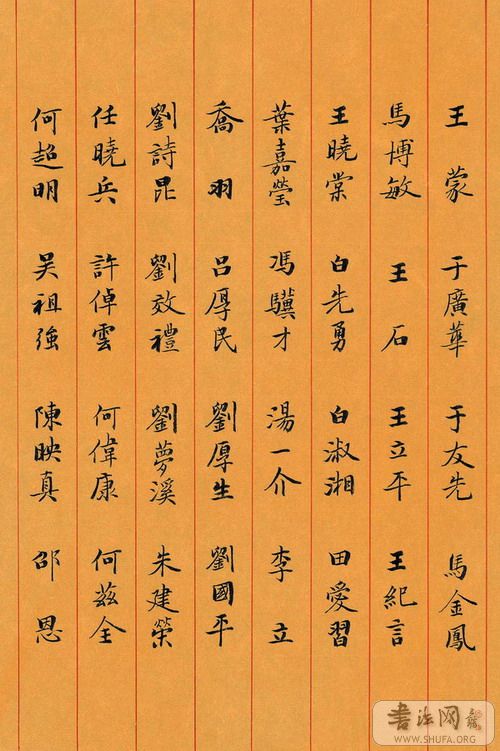 王蒙 于廣華 于友先 馬金鳳
馬博敏 王石 王立平 王紀言
王曉棠 白先勇 白淑湘 田愛習
葉嘉瑩 馮驥才 湯一介 李立
喬羽 呂厚民 劉厚生 劉國平
劉詩昆 劉效禮 劉夢溪 朱建榮
任曉兵 許倬雲 何偉康 何茲全
何超明 吴祖強 陳映真 邵恩
書法网
WWW.SHUFA.ORG